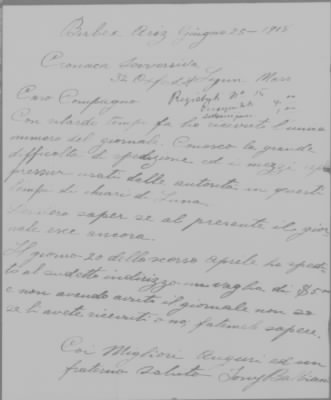 Bisbee Ariz Giugno 25 - 1918
Cronaca Sovversiva
32 Oxford St Lynn Mass
Caro Compagno
Con ritardo tempo fa ho ricevuto l'unico
numero del giornale. Conosco la grande
difficoltà di spedizione ed i mezzi
usati dalle autorità in questi
tempi di chiari di luna.
saper se al presente il gior
nale esce ancora.
Il giorno 20 dello scorso Aprile ho spedi
to al sudetto indirizzo un vaglia di $5
e non avendo avuto il giornale non so
se li avete ricevuti o no, fatemelo sapere.
Coi Migliori Auguri ed un
fraterno saluto Tony